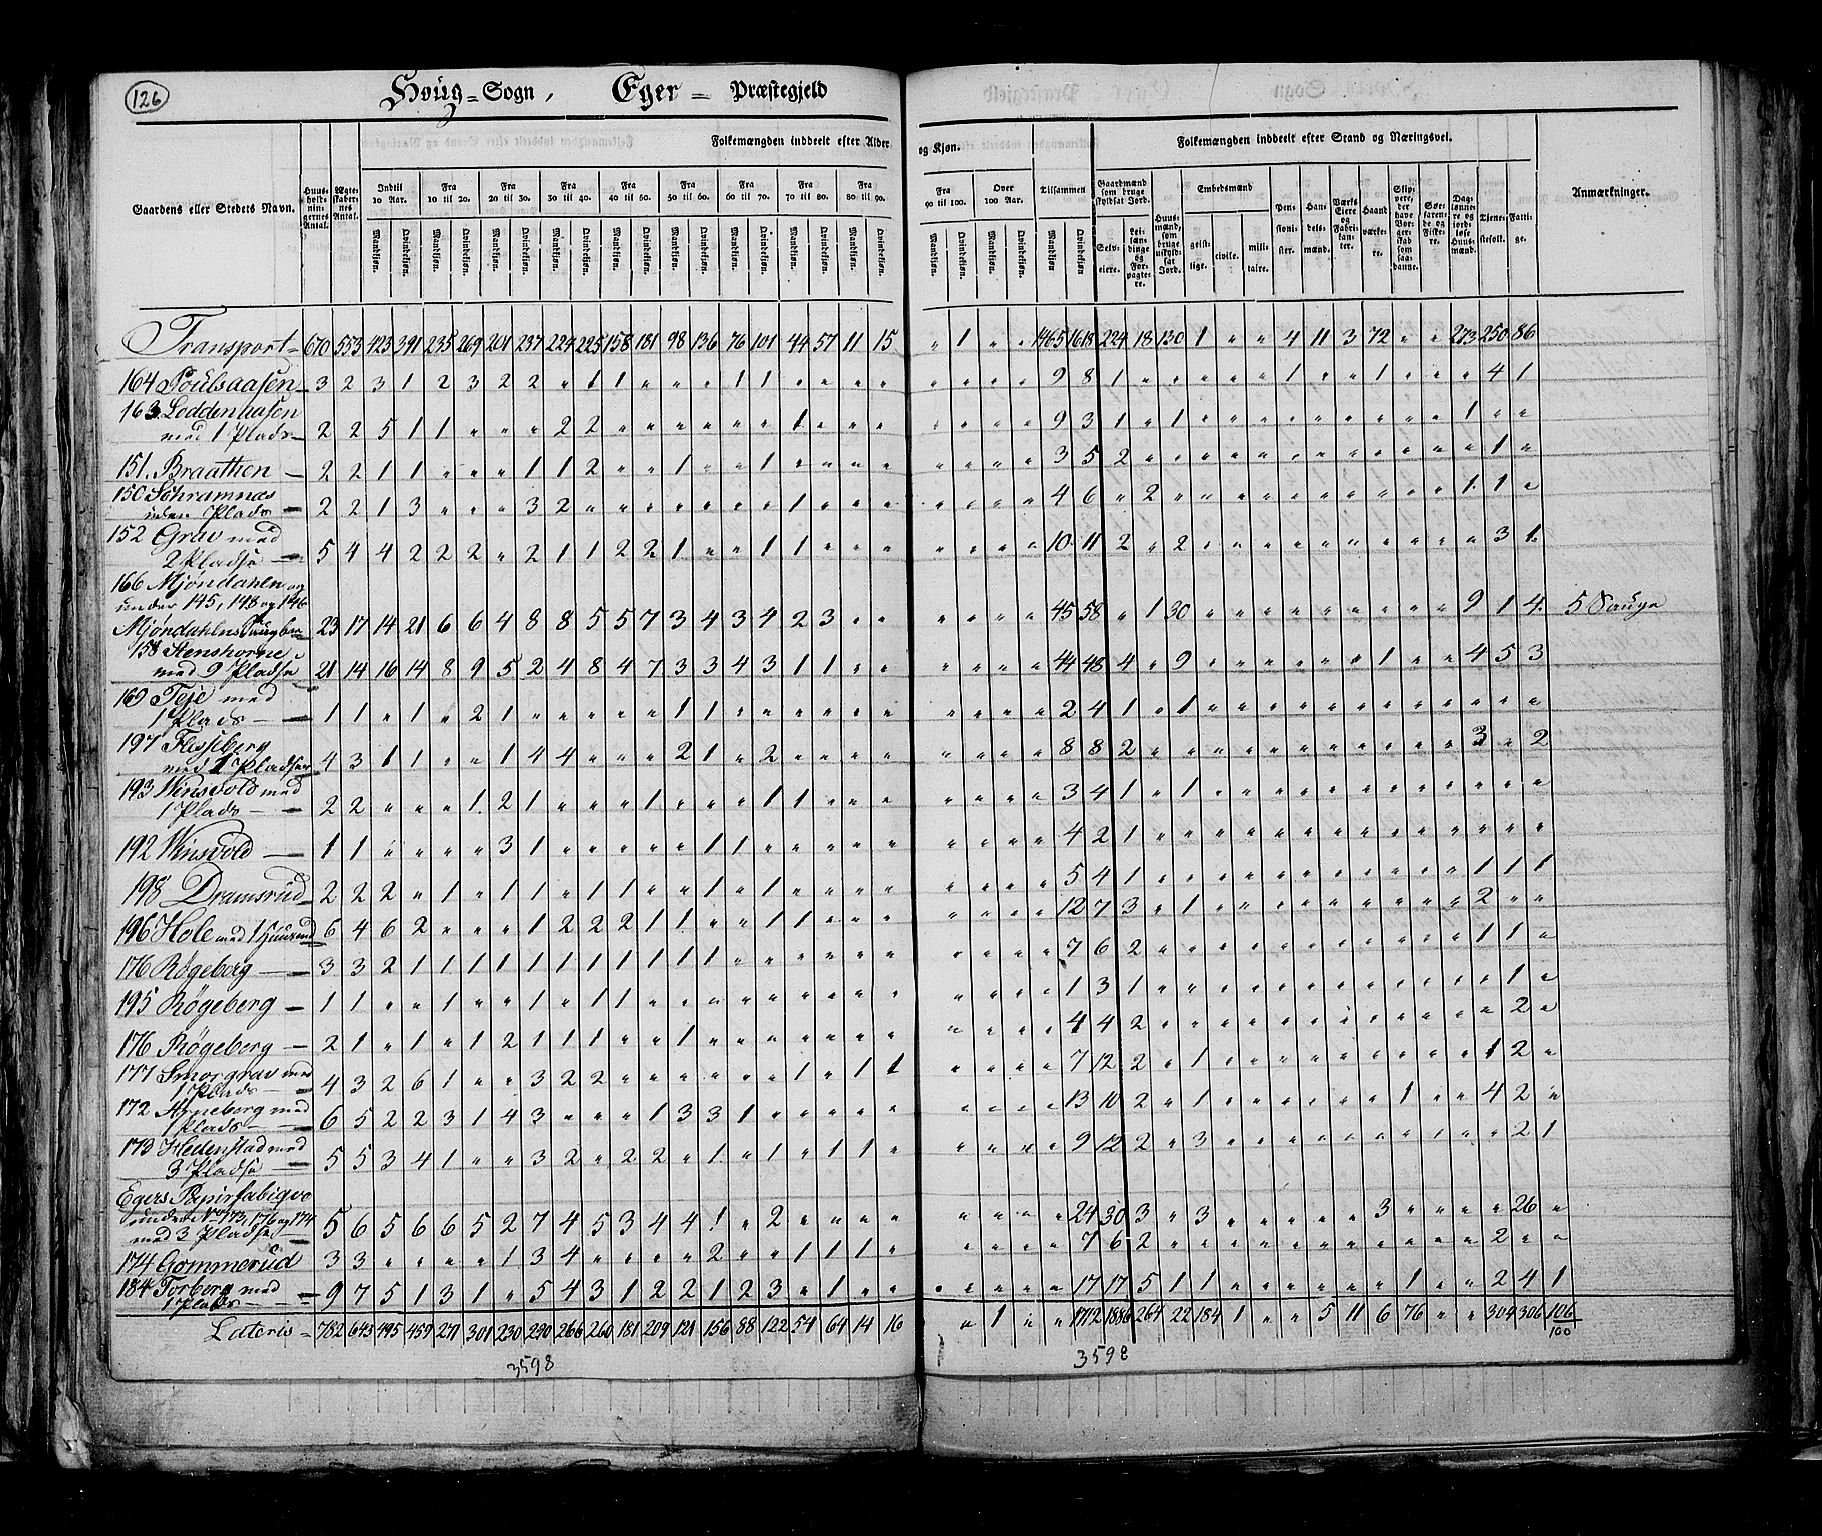 126
Houg=Sogn, Eger= Præstegjeld
Folkemængden inddeelt efter Alder og Kjøn.
Folkemængden inddeelt efter Stand og Næringsvei.
Gaardens eller Stedets Navn.
Huusholdningernes Antal.
Ægteskabernes Antal.
Indtil 10 Aar.
Fra 10 til 20.
Fra 20 til 30.
Fra 30 til 40.
Fra 40 til 50.
Fra 50 til 60.
Fra 60 til 70.
Fra 70 til 80.
Fra 80 til 90.
Fra 90 til 100.
Over 100 Aar.
Tilsammen
Mandkjøn. Qvindekjøn.
Gaardmænd som bruge skyldsat Jord.
Selveiere.
Leilændinge og Forpagtere.
Huusmænd, som bruge uskyldsat Jord.
Embedsmænd
geistlige. civile. militaire.
Pensionister.
Handelsmænd.
Værks Eiere og Fabrikanter.
Haandværkere.
Skippere, der have Borgerskab som saadanne.
Søefarende og Fiskere.
Daglønnere og jordløse Huusmænd.
Tjenestefolk.
Fattige.
Anmærkninger.
Transport= 670 553 423 391 235 269 201 237 224 225 158 181 98 136 76 101 44 57 11 15 " 1 " " 1465 1618 224 18 130 1 " " 4 11 3 72 " " 273 250 86
164 Poulsaasen 3 2 3 1 2 3 2 2 " 1 1 " " " 1 1 " " " " " " " " 9 8 1 " " " " " 1 " " 1 " " " 4 1
163 Loddenhaasen
med 1 Plads 2 2 5 1 1 " " " 2 2 " " " " " " 1 " " " " " " " 9 3 1 " 1 " " " " " " " " " 1 " "
151. Braathen 2 2 1 1 " " " 1 1 2 " " 1 " " 1 " " " " " " " " 3 5 2 " " " " " " " " " " " " 1 "
150 Schramnæs
uden Plads 2 2 1 3 " " " 3 2 " " " " " " " 1 " " " " " " " 4 6 " 2 " " " " " " " " " " 1 1 "
152 Grav med
2 Pladse 5 4 4 2 2 2 " 2 1 1 2 2 1 " " 1 1 " " " " " " " 10 11 2 " 2 " " " " " " " " " " 3 1
166 Mjøndahlen og
under 145, 148 og 146
Mjøndahlens Saugbr 23 17 14 21 6 6 4 8 8 5 5 7 3 4 3 4 2 3 " " " " " " 45 58 " 1 30 " " " " " " " " " 9 1 4 5 Sauge
158 Stenshorne
med 9 Pladse 21 14 16 14 8 9 5 2 4 8 4 7 3 3 4 3 1 1 " " " " " " 44 48 4 " 9 " " " " " " 1 " " 4 5 3
169 Teje med
1 Plads 1 1 " 1 " 2 1 " " " " " 1 1 " " " " " " " " " " 2 4 1 " 1 " " " " " " " " " " " "
197 Flesseberg
med 1 Pladser 4 3 1 1 " " 1 4 4 " " " 2 1 " 2 " " " " " " " " 8 8 2 " " " " " " " " " " " 3 " 2
193 Winsvold med
1 Plads 2 2 " " " 1 2 1 " " " 1 " " " 1 1 " " " " " " " 3 4 1 " 1 " " " " " " " " " " " "
192 Winsvold 1 1 " " " " 3 1 " " " " 1 1 " " " " " " " " " " 4 2 1 " " " " " " " " " " " " " "
198 Dramsrud 2 2 2 " 1 " 1 1 " 1 " " " 1 " 1 " " " " " " " " 5 4 1 " " " " " " " " " " " 1 1 1
196 Hole med 1 Huusmd 6 4 6 2 " " " 1 2 2 2 1 1 " " 1 1 " " " " " " " 12 7 3 " 1 " " " " " " " " " 2 " "
176 Røgeberg 3 3 2 1 1 1 1 1 1 1 1 1 1 1 " " " " " " " " " " 7 6 2 " " " " " " " " " " " 1 1 "
195 Røgeberg 1 1 " " 1 " " 1 " 1 1 " " " " " " " " " " " " " 1 3 1 " " " " " " " " " " " " 1 "
176 Røgeberg 2 1 " 1 " 1 2 1 1 1 " " 1 " " " " " " " " " " " 4 4 2 " " " " " " " " " " " " 2 "
177 Smorgrav med
1 Plads 4 3 2 6 1 " " 3 2 2 " " " " " " 1 " 1 1 " " " " 7 12 2 " 1 " " " " " " " " " 1 2 "
172 Arneberg med
1 Plads 6 5 2 2 3 1 4 3 " " " 1 3 3 1 " " " " " " " " " 13 10 2 " 1 " " " " " " 1 " " 4 2 "
173 Hedenstad med
3 Pladse 5 5 3 4 1 " " 3 2 " 2 2 " 1 " 1 " 1 1 " " " " " 9 12 2 " 3 " " " " " " " " " " 2 1
Egers Papirfabiqve
under No 173, 176 og 174
med 3 Pladse 5 6 5 6 6 5 2 7 4 5 3 4 4 1 " 2 " " " " " " " " 24 30 3 " 3 " " " " " 3 " " " " 26 "
174 Gommerud 3 3 " " " " 1 3 4 " " " " 2 " " 1 1 1 " " " " " 7 6 2 " " " " " " " " " " " 2 " "
184 Torberg med
1 Plads 9 7 5 1 3 1 " 5 4 3 1 2 2 1 2 3 " 1 " " " " " " 17 17 5 1 1 " " " " " " 1 " " 2 4 1
Lateris = 782 643 495 459 271 301 230 290 266 260 181 209 121 156 88 122 54 64 14 16 " 1 " " 1712 1886 264 22 184 1 " " 5 11 6 76 " " 304 306 106
100
3598
3598